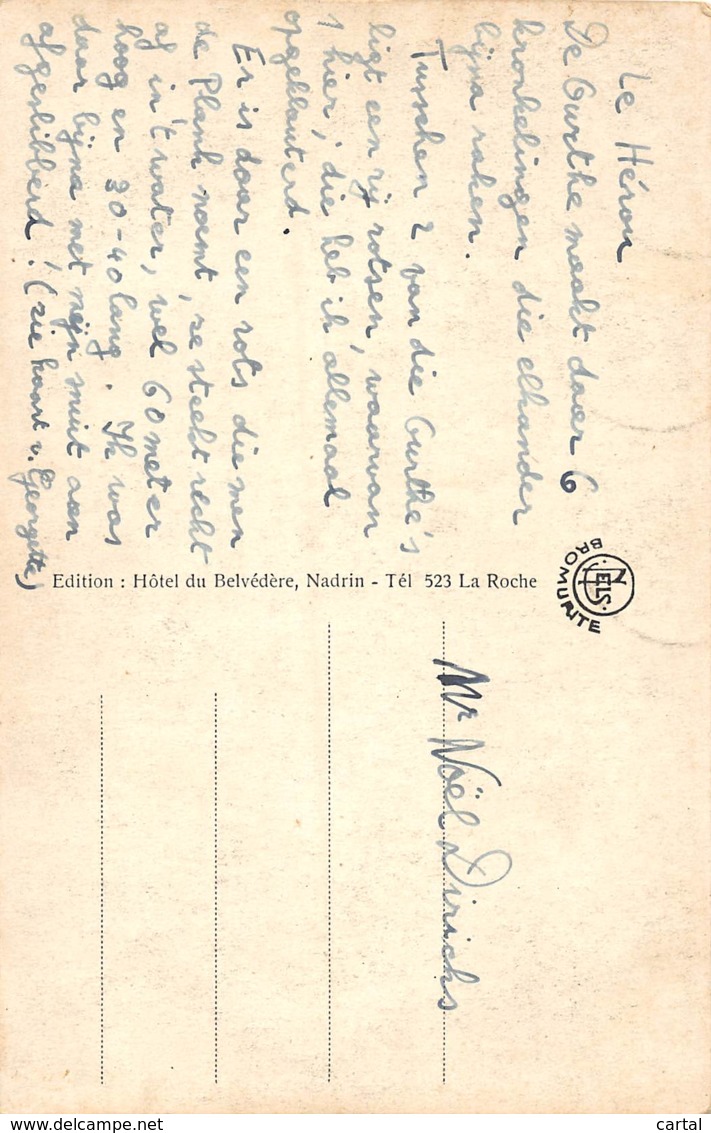 Le Hérou
De Ourthe maakt daar 6
kronkelingen die elkander
bijna raken.
Tusschen 2 van die Ourthe's
ligt een rij rotsen, waarvan
1 hier, die heb ik allemaal
opgeklauterd.
Er is daar een rots die men
de Plank noemt, ze steekt recht
af in 't water, wel 60 meter
hoog en 30-40 lang. Ik was
daar bijna met mijn muit aan
afgeslibberd! (zie kaart v. Georgette)
Edition : Hôtel du Belvédère, Nadrin - Tél 523 La Roche
NELS
BROMURITE
Mr Noël Dirichs
cartal